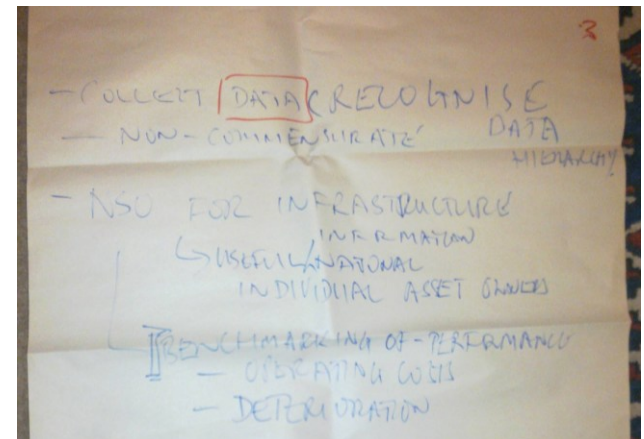 3
- COLLECT DATA & RECOGNISE
DATA
HIERARCHY
- NON-COMMENSURATE
- NSO FOR INFRASTRUCTURE
INFRMATION
↳ USEFUL / NATIONAL
INDIVIDUAL ASSET OWNERS
BENCHMARKING OF - PERFRMANCE
- OPERATING COSTS
- DETERIORATION